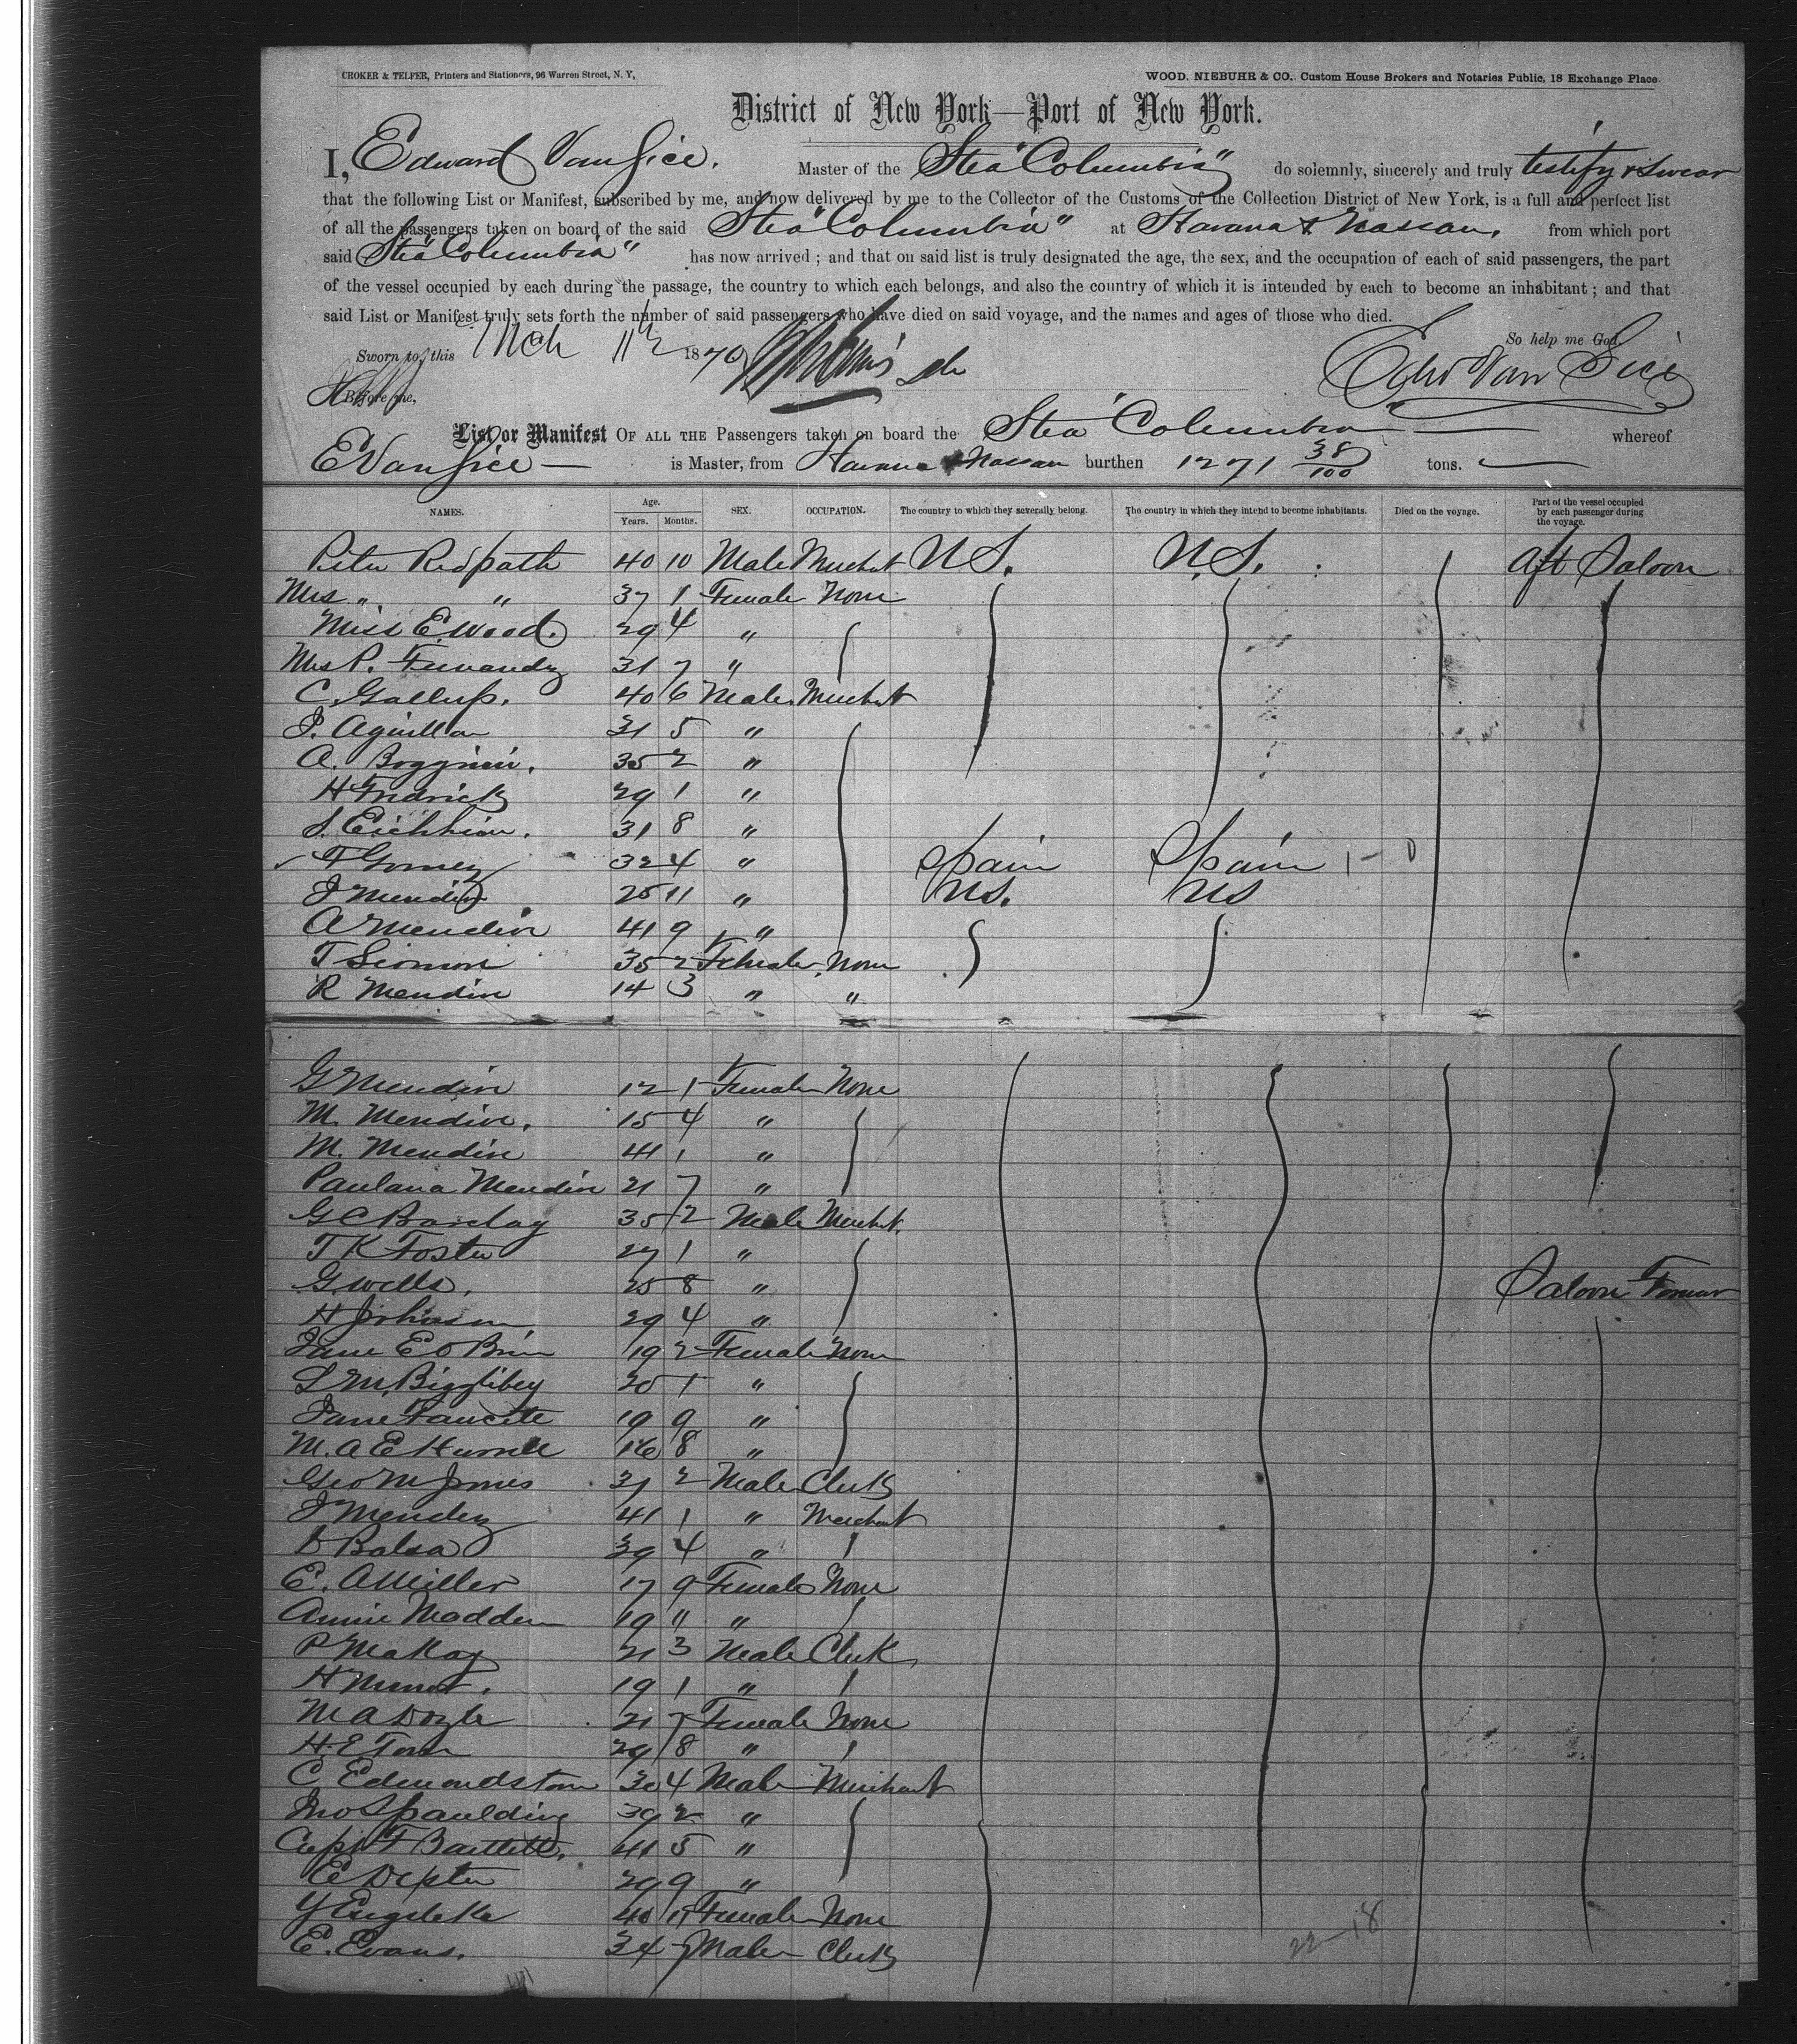 CROKER & TELFER, Printers and Stationers, 96 Warren Street, N. Y.
WOOD, NIEBUHR & CO., Custom House Brokers and Notaries Public, 18 Exchange Place.
District of New York—Port of New York.
I, Edward VanSice. Master of the Stea "Columbia" do solemnly, sincerely and truly testify & swear
that the following List or Manifest, subscribed by me, and now delivered by me to the Collector of the Customs of the Collection District of New York, is a full and perfect list
of all the passengers taken on board of the said Stea "Columbia" at Havana & Nassau, from which port
said Stea "Columbia" has now arrived ; and that on said list is truly designated the age, the sex, and the occupation of each of said passengers, the part
of the vessel occupied by each during the passage, the country to which each belongs, and also the country of which it is intended by each to become an inhabitant ; and that
said List or Manifest truly sets forth the number of said passengers who have died on said voyage, and the names and ages of those who died.
So help me God
Sworn to, this Mch 11th 1870
Edw Van Sice
Before me,
List or Manifest OF ALL THE Passengers taken on board the Stea Columbia whereof
E VanSice is Master, from Havana & Nassau burthen 1271 38/100 tons.
NAMES. Age. Years. Months. SEX. OCCUPATION. The country to which they severally belong. The country in which they intend to become inhabitants. Died on the voyage. Part of the vessel occupied by each passenger during the voyage.
Peter Redpath 40 10 Male Mercht U S. U.S. Aft Saloon
Mrs " " 37 1 Female None
Miss E. Wood. 29 4 "
Mrs P. Fernandez 31 7 "
C. Gallup. 40 6 Male Mercht
J. Aguilla 31 5 "
A. 35 2 "
H Fredrick 29 1 "
S. 31 8 "
F Gomez 32 4 " Spain Spain 1 - 0
J Mendive 25 11 " US. US
A Mendive 41 9 "
T 35 2 Female None
R Mendive 14 3 " "
G Mendive 12 1 Female None
M. Mendive. 15 4 "
M. Mendive 41 1 "
Paulana Mendive 21 7 "
G C Barclay 35 2 Male Mercht.
T K Foster 27 1 "
G Wells. 25 8 " Saloon Forwar
H Johnson 29 4 "
Jane E O Brien 19 2 Female None
S M. 20 1 "
Jane Faucette 19 9 "
M. A E 16 8 "
Geo M Jones 31 2 Male Clerk
J Mendez 41 1 " Merchant
B Balsa 39 4 "
E. A Miller 17 9 Female None
Annie Madden 19 11 "
P MaKay 21 3 Male Clerk
H 19 1 "
M A Doyle 21 7 Female None
H. E 29 8 "
C Edmondstone 30 4 Male Merchant
Jno Spaulding 39 2 "
Capt F Bartlett. 41 5 "
E Dexter 29 9 "
Y 40 11 Female None
E. Evans. 34 7 Male Clerk
22-18